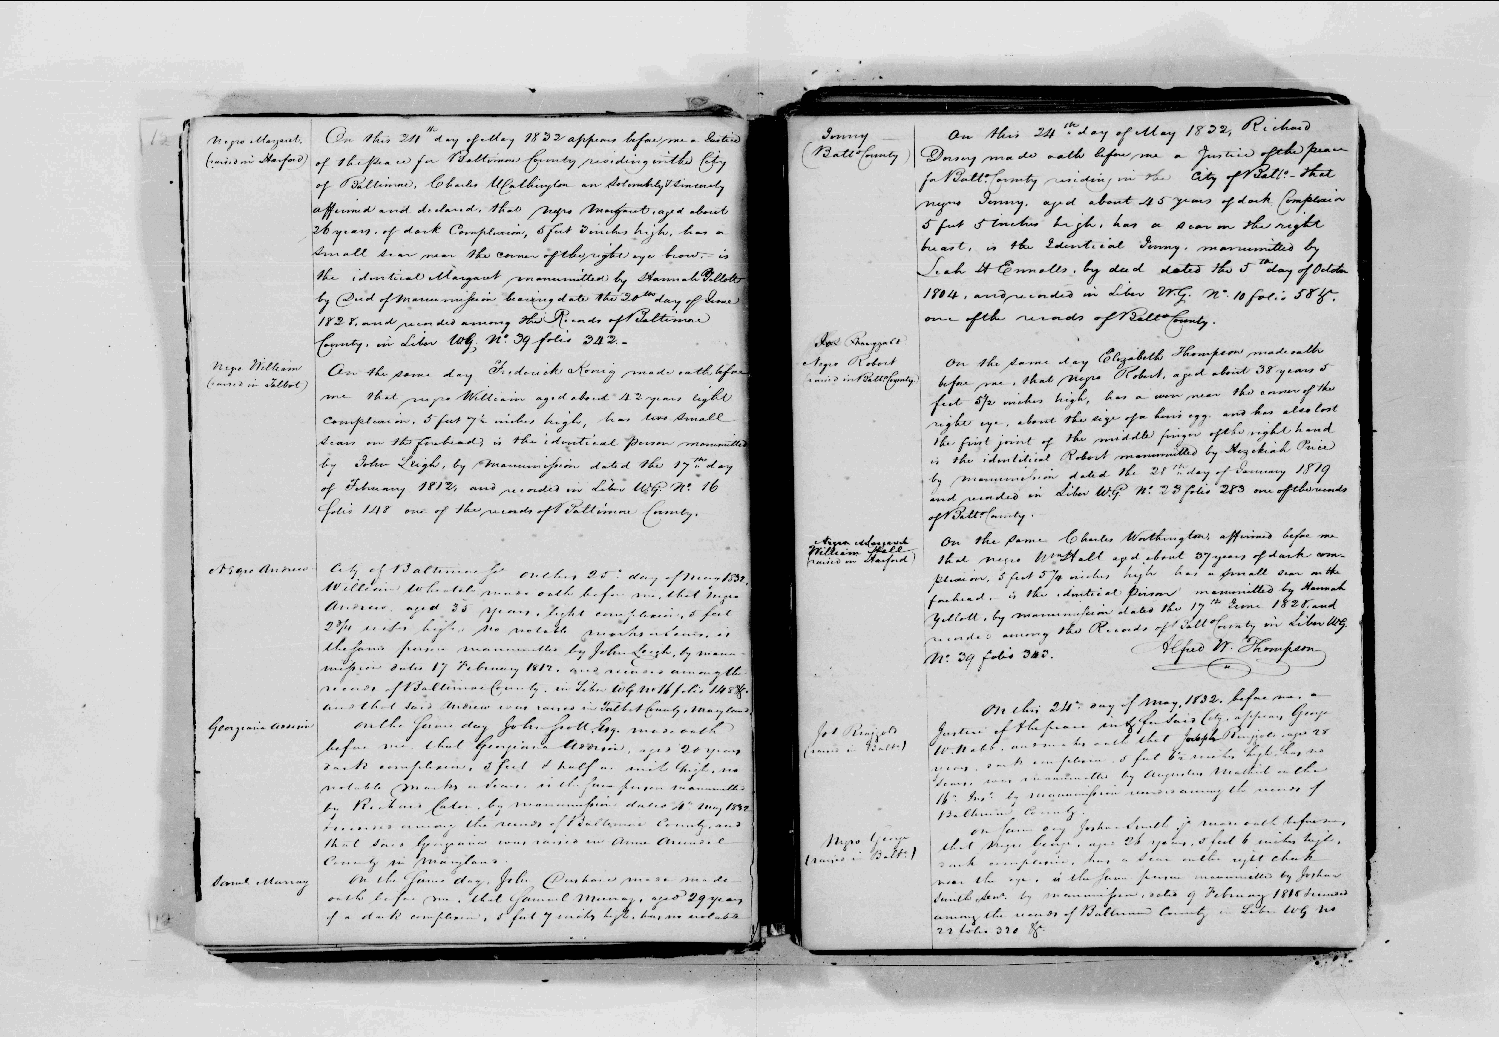 Negro Margaret,
(raised in Harford)
On this 24th day of May 1832 appears before me a Justice
of the Peace for Baltimore County residing in the City
of Baltimore, Charles Worthington an Solemnly & Sincerely
affirmed and declared, that negro Margaret, aged about
26 years, of dark Complexion, 5 feet 3 inches high, has a
small scar near the corner of the right eye brow, - is
the identical Margaret manumitted by Hannah Yellott
by Deed of Manumission bearing date the 20th day of June
1828, and recorded among the Records of Baltimore
County, in Liber WG, No. 39 folio 342. -
Negro William
(raised in Talbot)
On the same day Frederick Konig made oath before
me that negro William aged about 42 years light
complexion, 5 feet 7½ inches high, has two small
scars on the forehead, is the identical person manumitted
by John Leigh, by manumission dated the 17th day
of February 1812, and recorded in Liber W.G. No. 16
folio 148 one of the records of Baltimore County.
Negro Andrew
City of Baltimore Sc. On this 25th day of May 1832,
William made oath before me, that negro
Andrew, aged 35 years, light complexion, 5 feet
2¾ inches high, no notable marks or scars, is
the same person manumitted by John Leigh, by manu-
mission dated 17 February 1812, and recorded among the
records of Baltimore County, in Liber WG No 16 folio 148 &c.
and that said Andrew was raised in Talbot County, Maryland.
Georgiana
On the same day John Scott Esq. made oath
before me that Georgiana, aged 20 years
dark complexion, 5 feet & half an inch high, no
notable marks or scars, is the same person manumitted
by Richard, by manumission dated May 1832
recorded among the records of Baltimore County, and
that said Georgiana was raised in Anne Arundel
County in Maryland.
Saml Murray
On the same day, John made made
oath before me, that Samuel Murray, aged 29 years
of a dark complexion, 5 feet 7 inches high, has no notable
Jenny
(Balto County)
On this 24th day of May 1832, Richard
Dorsey made oath before me a Justice of the peace
for Balto. County residing in the City of Balto. - that
negro Jenny, aged about 45 years of dark Complexion
5 feet 5 inches high, has a scar on the right
breast, is the Identical Jenny, manumitted by
Leah H Ennalls, by deed dated the 5th day of October
1804, and recorded in Liber W.G. No. 10 folio 58 &c.
one of the records of Balto County.
Negro Robert
(raised in Balto County)
On the same day Elizabeth Thompson made oath
before me, that negro Robert, aged about 38 years 5
feet 5½ inches high, has a wen near the corner of the
right eye, about the size of a hen's egg, and has also lost
the first joint of the middle finger of the right hand
is the identical Robert manumitted by Hezekiah Price
by manumission dated the 28th day of January 1819
and recorded in Liber W.G. No. 23 folio 283 one of the records
of Balto. County.
Negro Margaret
William Hall
(raised in Harford)
On the same Charles Worthington, affirmed before me
that negro Wm Hall aged about 37 years of dark com-
plexion, 5 feet 5¼ inches high has a small scar on the
forehead, - is the identical person manumitted by Hannah
Yellott, by manumission dated the 17th June 1828, and
recorded among the Records of Balto County in Liber WG.
No. 39 folio 343.
Alfred W. Thompson
On this 24th day of May, 1832, before me, a
Justice of the peace in & for said City, appears George
W. and makes oath that Joseph Ringgold aged 28
years, dark complexion, 5 feet inches high, has no
scars, was manumitted by Augustus on the
16th by manumission recorded among the records of
Baltimore County.
Jos Ringgold
(raised in Balto.)
Negro George
(raised in Balto.)
On same day Joshua Smith Jr made oath before me,
that Negro George, aged 26 years, 5 feet 6 inches high,
dark complexion, has a scar on the right cheek
near the eye, is the same person manumitted by Joshua
Smith Senr. by manumission dated 9 February 1818 recorded
among the records of Baltimore County in Liber WG No
22 folio 320 &c.